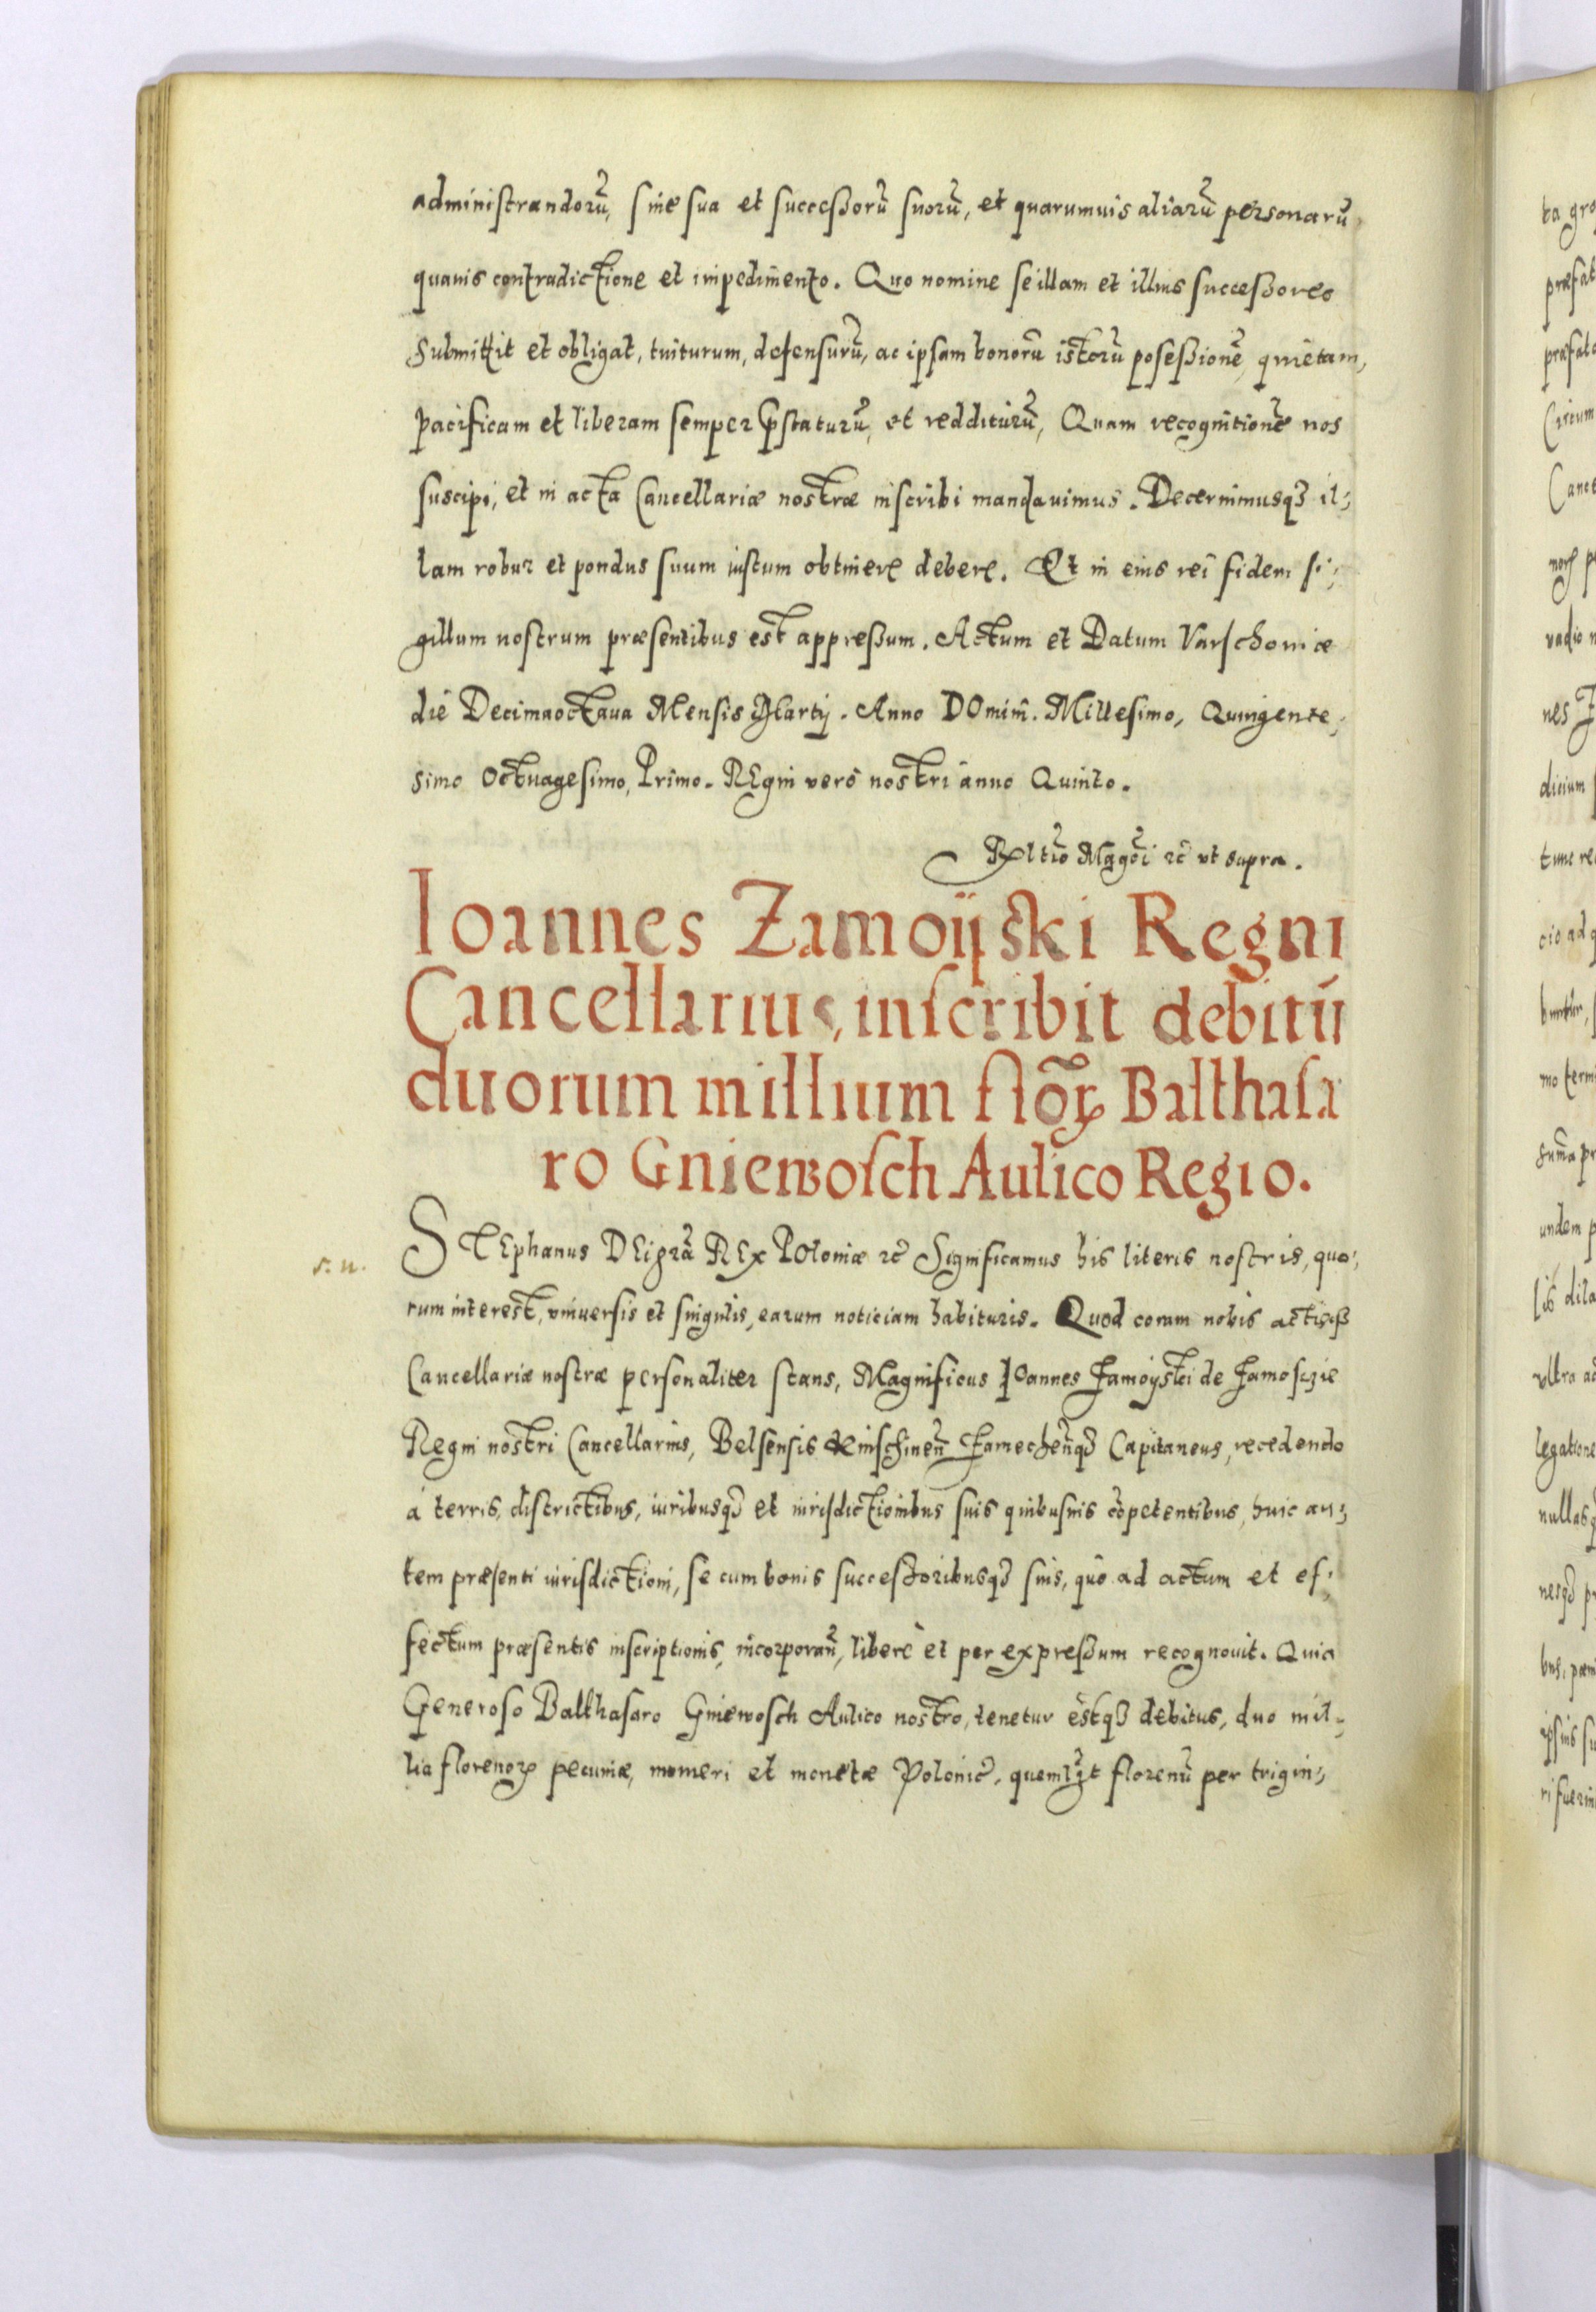 administrandorũ, sine sua et succeßorũ suorũ, et quarumuis aliarũ personarũ
quauis contradictione et impedimento. Quo nomine se illam et illius succeßores
submittit et obligat, tuiturum, defensurũ, ac ipsam bonorũ istorũ poseßionẽ, quietam,
pacificam et liberam semper p̃staturũ, et redditurũ, Quam recognitionẽ nos
suscipi, et in acta Cancellariæ nostræ inscribi mandauimus. Decernimusqȝ il-
lam robur et pondus suum iustum obtinere debere. Et in eius rei fidem si-
gillum nostrum præsentibus est appreßum. Actum et Datum Varschouiæ
die Decimaoctaua Mensis Martij. Anno DOmini. Millesimo, Quingente-
simo Octuagesimo, Primo. REgni vero nostri anno Quinto.
Rltio Mgci ꝛc̃ vt supra.
Ioannes Zamoijski Regni
Cancellarius, inscribit debitũ
duorum millium florꝝ Balthasa
ro Gniewosch Aulico Regio.
s. n.
STEphanus DEi grã REx POloniæ ꝛc̃ Significamus his literis nostris, quo-
rum interest, vniuersis et singulis, earum noticiam habituris. Quod coram nobis actisqȝ
Cancellariæ nostræ personaliter stans, Magnificus IOannes Zamoijski de Zamoscie
Regni nostri Cancellarius, Belsensis Zamecheñqȝ Capitaneus, recedendo
á terris, districtibus, iuribusqȝ et iurisdictionibus suis quibusuis cõpetentibus, huic au-
tem præsenti iurisdictioni, se cum bonis succeßoribusqȝ suis, quo ad actum et ef-
fectum præsentis inscriptionis, incorporañ, libere et per expreßum recognouit. Quia
Generoso Balthasaro Gniewosch Aulico nostro, tenetur estqȝ debitus, duo mil-
lia florenoꝝ pecuniæ, numeri et monetæ Polonic̃, quemlȝt florenũ per trigin-